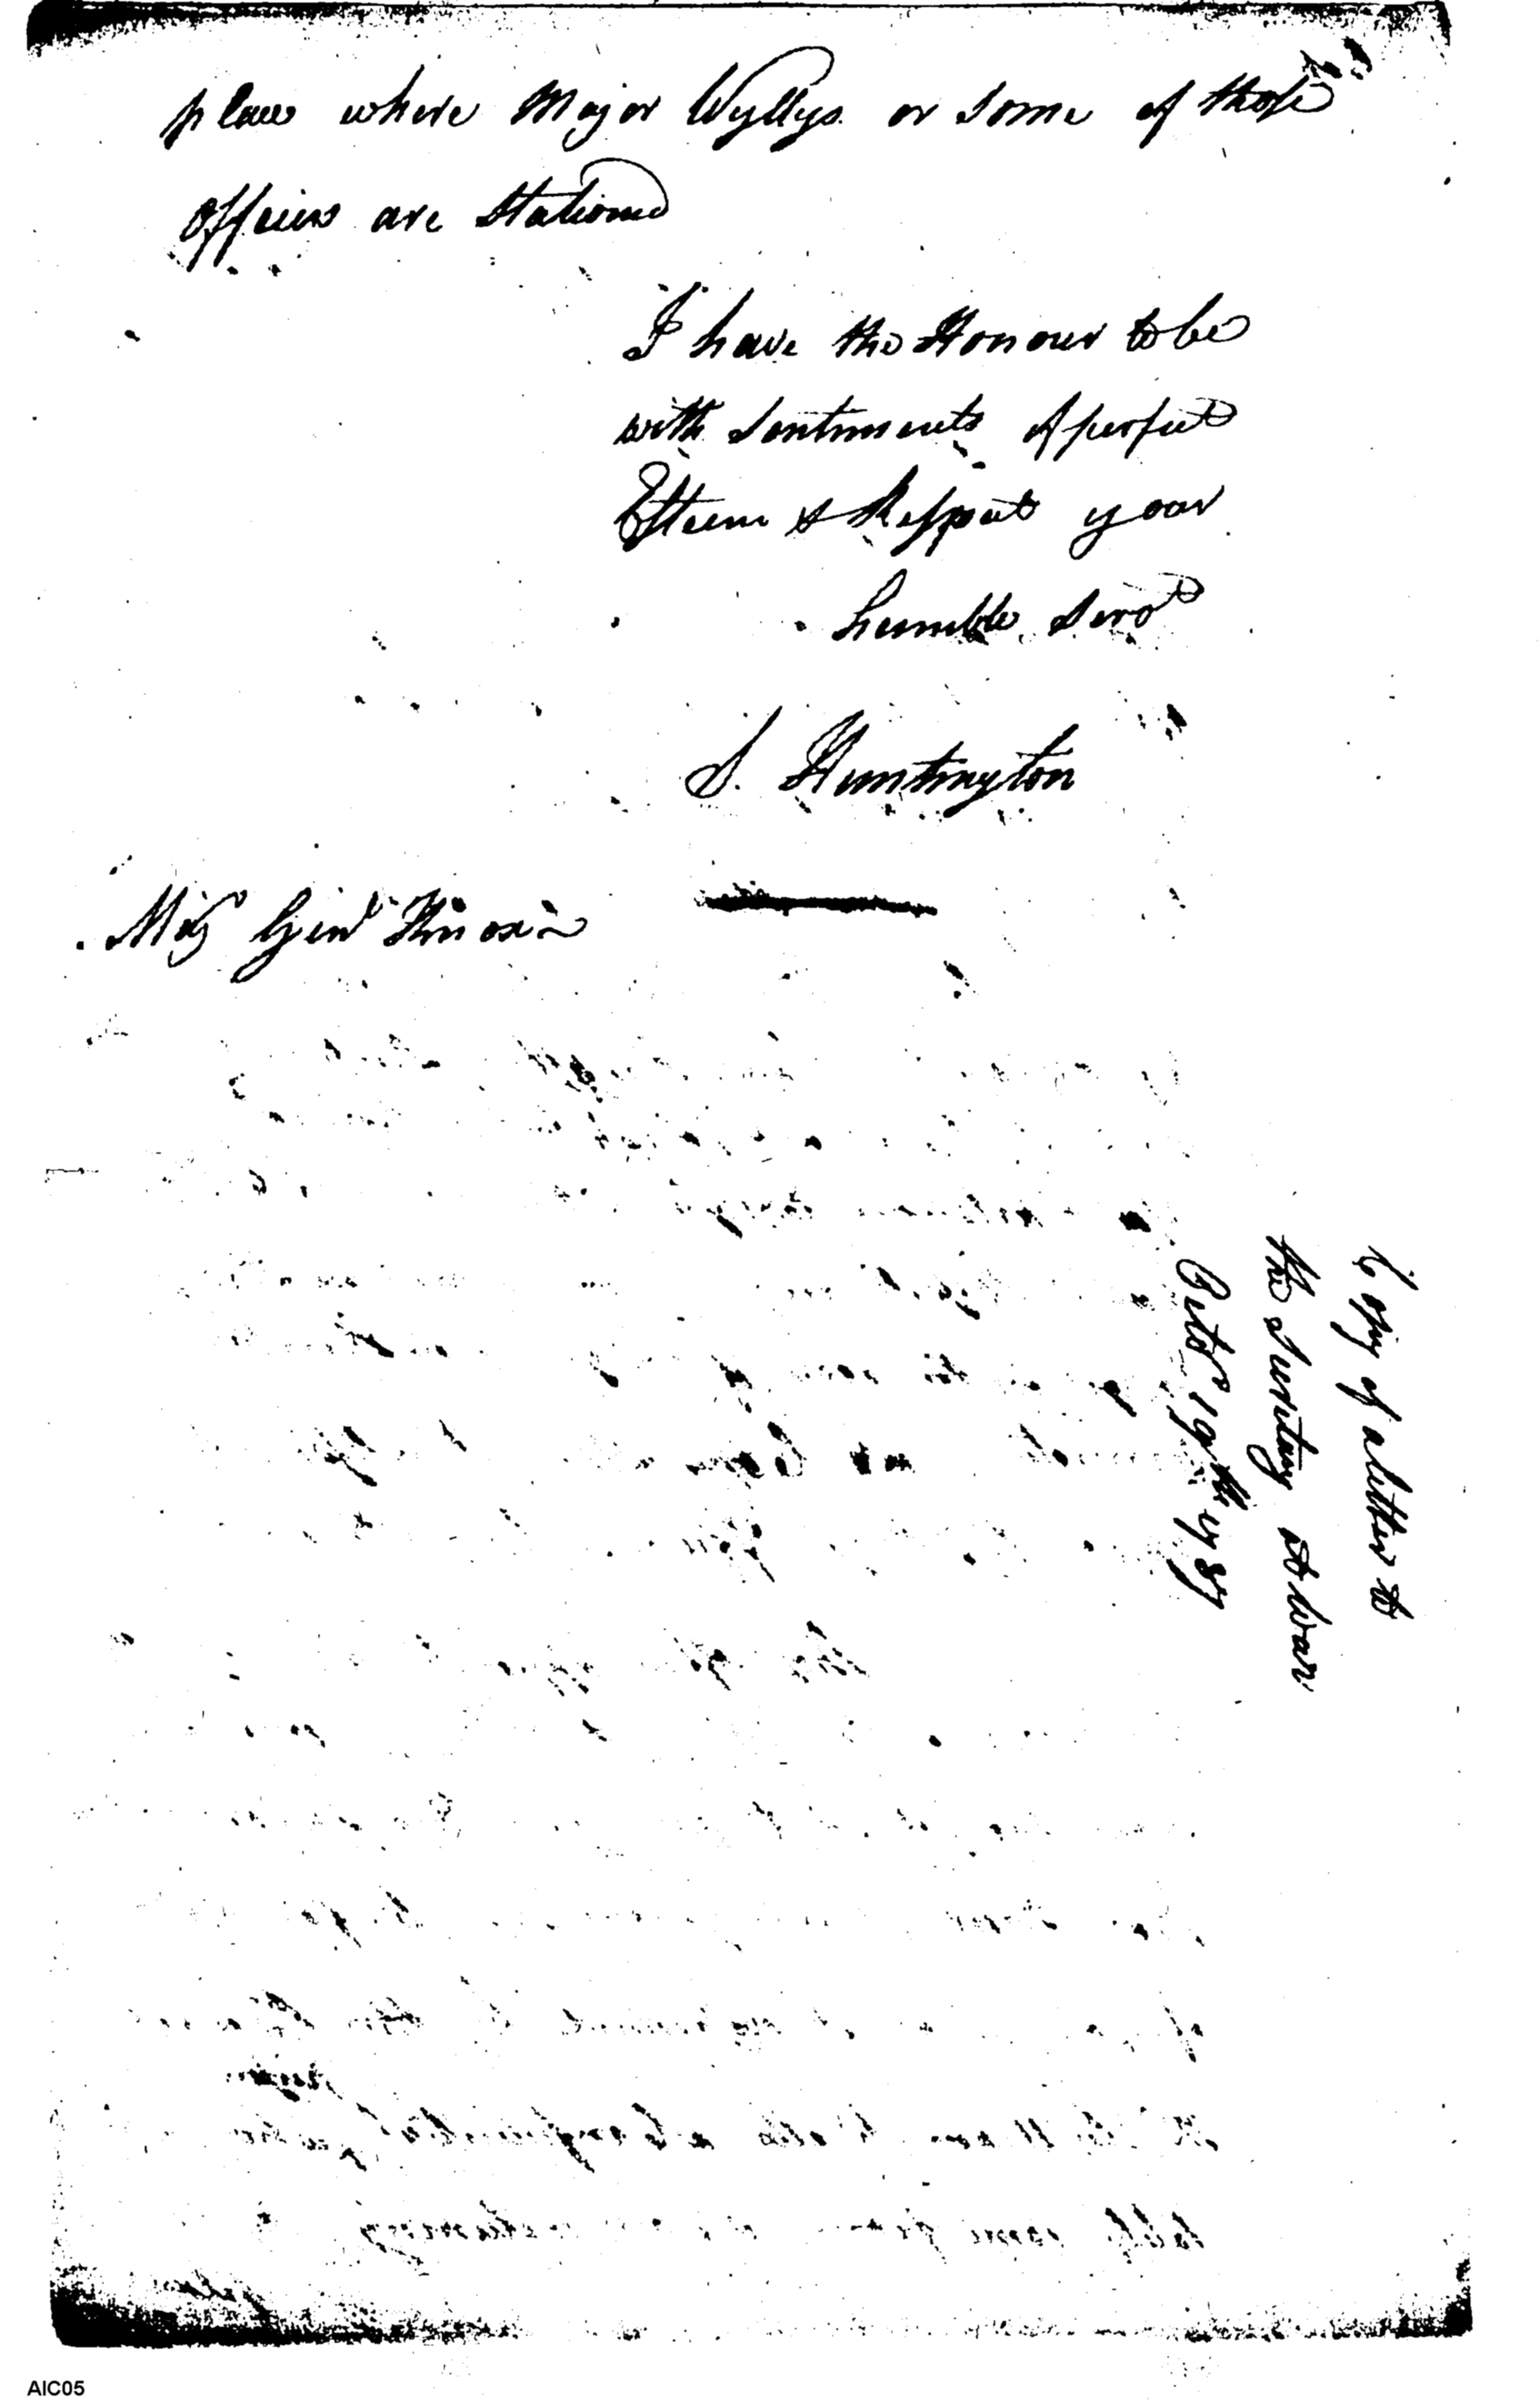 place where Major Wyllys or some of those
Officers are Stationed
I have the Honour to be
with Sentiments of perfect
Esteem & Respect your
humble Servt
S. Huntington
Maj Genl Knox
Copy of a letter to
the Secretary at War
Octbr 19th 1787
AIC05